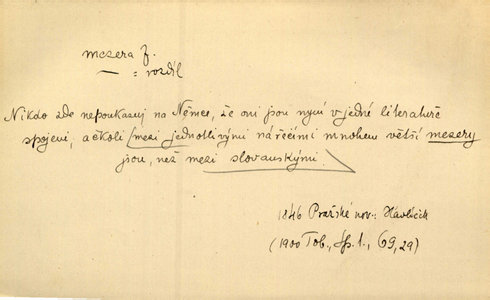 mezera f.
— : rozdíl
Nikdo zde nepoukazuj na Němce, že oni jsou nyní v jedné literatuře
spojeni, ačkoli mezi jednotlivými nářečími mnohem větší mezery
jsou, než mezi slovanskými.
1846 Pražské nov.: Havlíček
(1900 Tob., Sp. 1., 69,29)